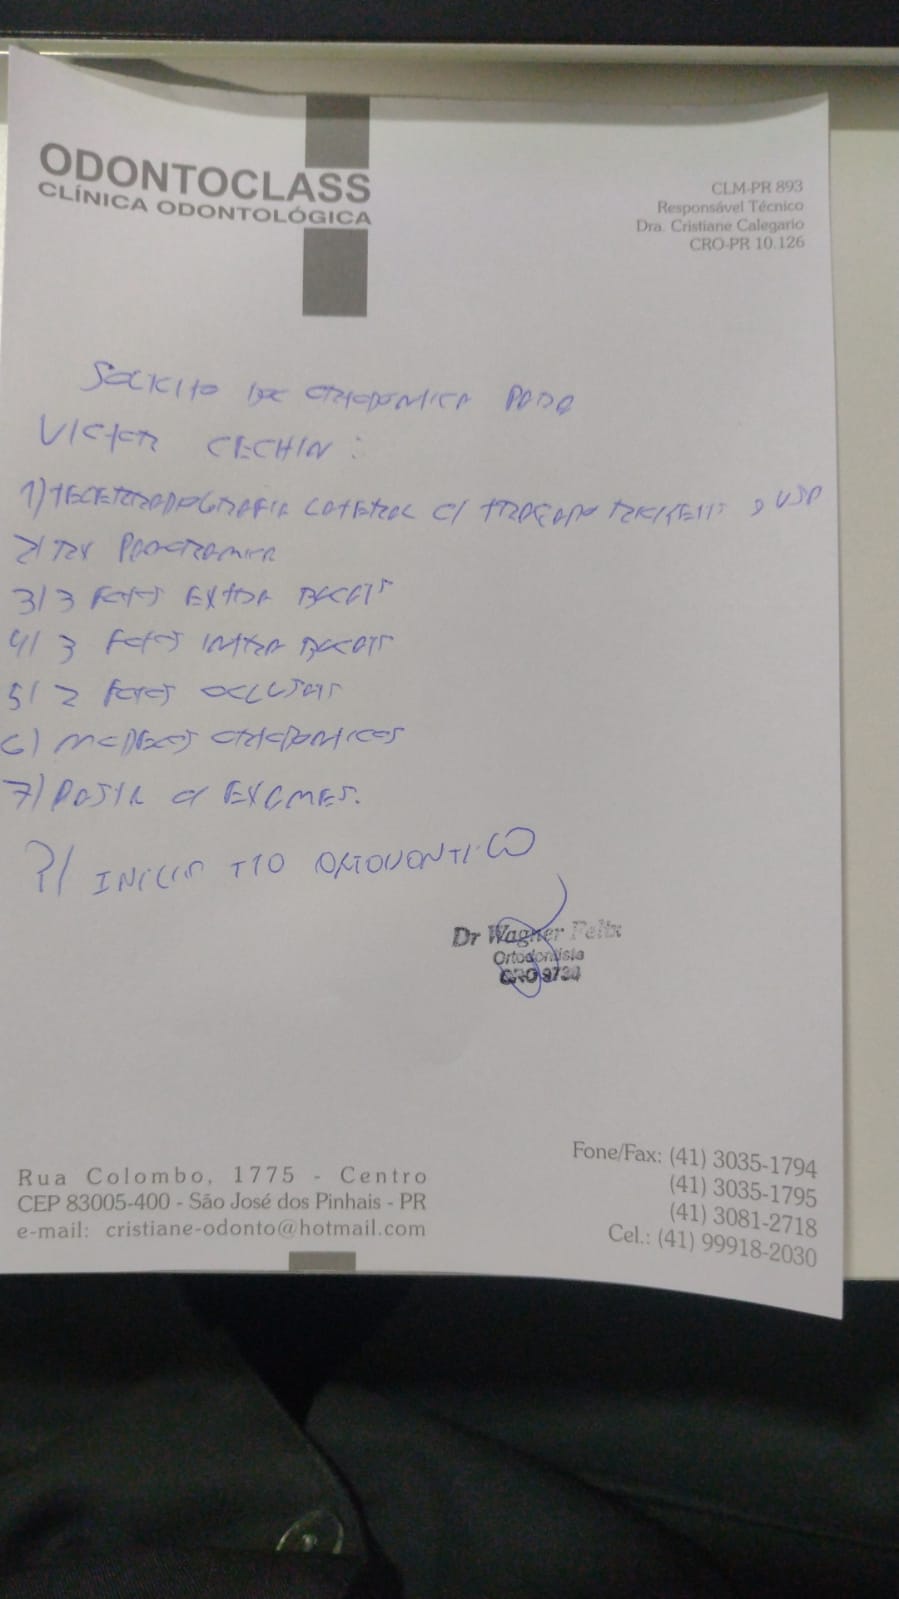 ODONTOCLASS
CLÍNICA ODONTOLÓGICA
CLM-PR 893
Responsável Técnico
Dra. Cristiane Calegario
CRO-PR 10.126
SOLICITO DOC ORTODONTICA PARA
VICTOR CECHIN:
1) TELERRADIOGRAFIA LATERAL C/ TRAÇADO USP
2) RX PANORAMICA
3) 3 FOTOS EXTRA BUCAIS
4) 3 FOTOS INTRA BUCAIS
5) 2 FOTOS OCLUSAIS
6) MODELOS ORTODONTICOS
7) PASTA C/ EXAMES.
P/ INICIO TTO ORTODONTICO
Dr Wagner Felix
Ortodontista
CRO 9730
Rua Colombo, 1775 - Centro
CEP 83005-400 - São José dos Pinhais - PR
e-mail: cristiane-odonto@hotmail.com
Fone/Fax: (41) 3035-1794
(41) 3035-1795
(41) 3081-2718
Cel.: (41) 99918-2030